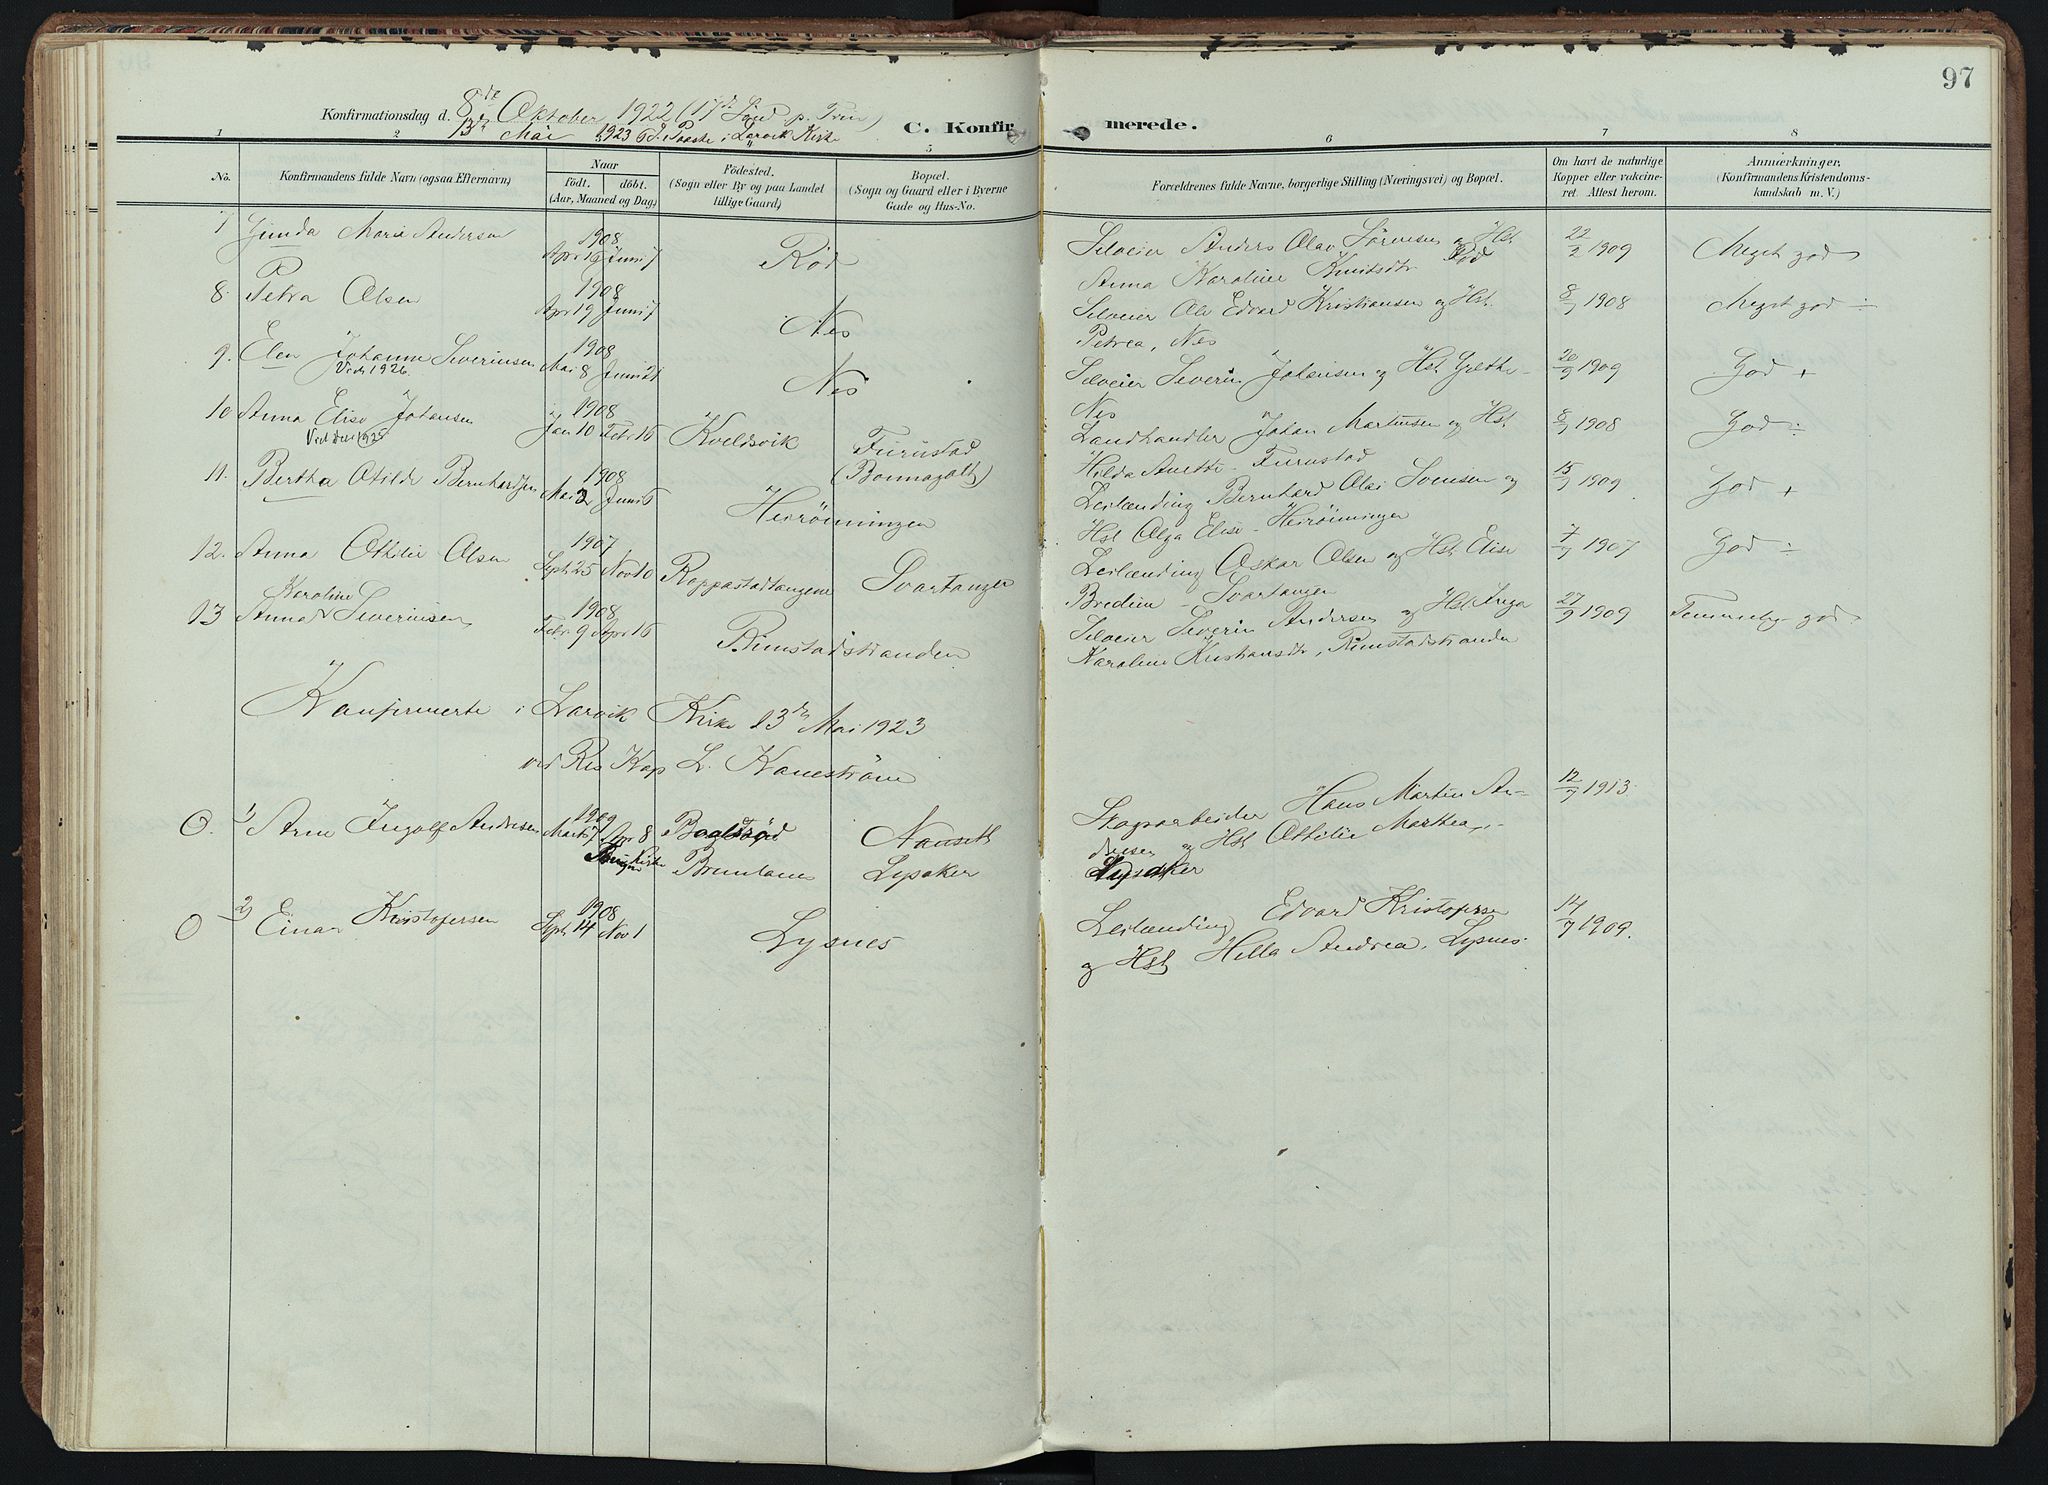 97
Konfirmationsdag d. 8de Oktober 1922 (17de Sønd. p. Trin)
13de Mai 1923 6 S. Paaske i Larvik Kirke
C. Konfirmerede.
1 2 3 5 6 7 8
No.
Konfirmandens fulde Navn (ogsaa Efternavn)
Naar
födt. döbt.
(Aar, Maaned og Dag)
Födested.
(Sogn eller By og paa Landet tillige Gaard)
Bopæl.
(Sogn og Gaard eller i Byerne Gade og Hus-No.
Forældrenes fulde Navne, borgerlige Stilling (Næringsvei) og Bopæl.
Om havt de naturlige Kopper eller vakcineret. Attest herom.
Anmærkninger.
(Konfirmandens Kristendomskundskab m. V.)
7 Gunda Marie Andersen 1908 Apr 19 Juni 7 Rød Selveier Anders Olav Sörensen og Hst Anna Karoline Knutsdtr Rød 22/2 1909 Meget god
8. Petra Olsen 1908 Apr 19 Juni 7 Nes Selveier Ole Edvard Kristiansen og Hst. Petrea, Nes 8/9 1908 Meget god ÷
9. Elen Johanne Severinsen Vids 1926 1908 Mai 8 Juni 21 Nes Selveier Severin Johansen og Hst Grethe - Nes 20/9 1909 God +
10 Anna Elise Johansen 1908 Jan 10 Febr 16 Kveldsvik Furustad (Bonnegolt) Landhandler Johan Martinsen og Hst Hilda Anette - Furustad 8/9 1908 God ÷
11. Bertha Otilde Bernhardsen 1908 Mai 2 Juni 6 Heirönningen Leilænding Bernhard Olai Svensen og Hst Olga Elise - Heirönningen 15/9 1909 God +
12. Anna Othilie Olsen 1907 Sept 25 Nov 10 Roppestadtangene Svartangen Leilænding Oskar Olsen og Hst Elise Bredine - Svartangen 7/9 1907 God ÷
13 Anna Karoline Severinsen 1908 Febr 9 Apr 16 Rimstadstranden Selveier Severin Andersen og Hst. Inga Karoline Kristiansdtr, Rimstadstranden 27/9 1909 Temmelig god
Konfirmerte i Larvik Kirke 13de Mai 1923
ved Res Kap L. Kanestrøm
O. 1) Arne Ingolf Andresen 1909 Marts 7 Apr 8 Berger Kirke Brunlanes Nanseth Lysaker Skogsarbeider Hans Martin Andresen og Hst Othilie Marthea, Lysaker 12/9 1913
O 2) Einar Kristofersen 1908 Sept 14 Nov 1 Lysnes Leilænding Edvard Kristofersen og Hst Hella Andrea, Lysnes 14/9 1909.